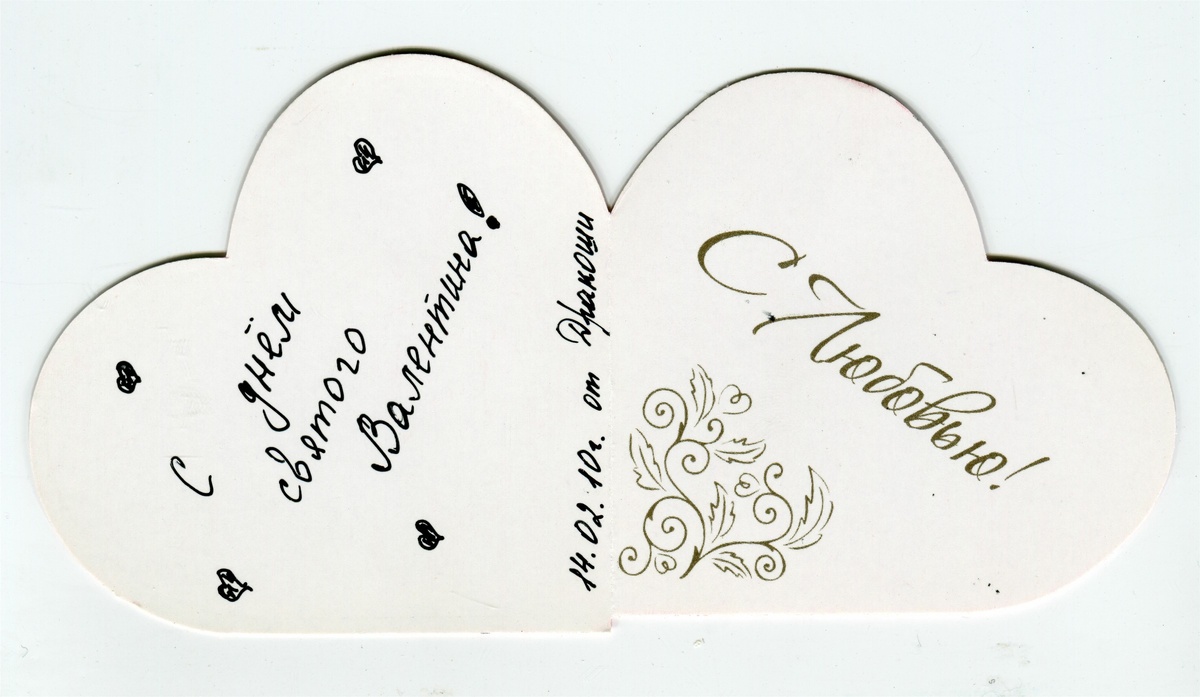 С
днём
святого
Валентина!
14.02.10г. от Дракоши
С Любовью!